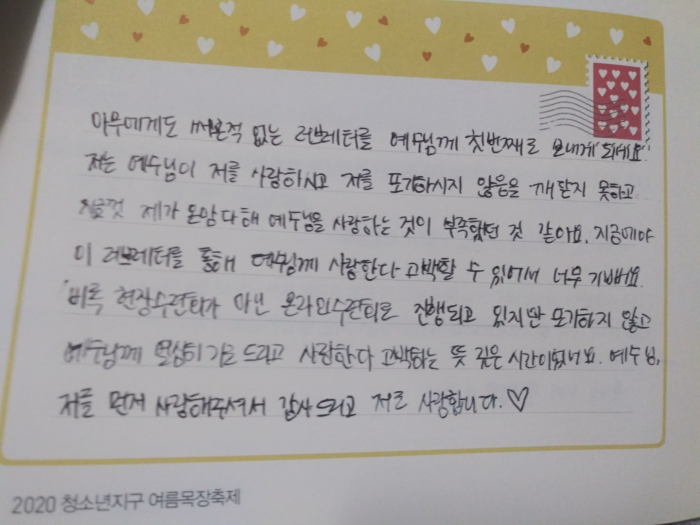 아무에게도 써본적 없는 러브레터를 예수님께 첫번째로 보내게 되네요.
저는 예수님이 저를 사랑하시고 저를 포기하시지 않음을 깨닫지 못하고
지금껏 제가 온맘 다해 예수님을 사랑하는 것이 부족했던 것 같아요. 지금에야
이 러브레터를 통해 예수님께 사랑한다 고백할 수 있어서 너무 기뻐요.
비록 현장수련회가 아닌 온라인수련회로 진행되고 있지만 포기하지 않고
예수님께 열심히 기도 드리고 사랑한다 고백하는 뜻 깊은 시간이었어요. 예수님,
저를 먼저 사랑해주셔서 감사드리고 저도 사랑합니다.♡
2020 청소년지구 여름목장축제